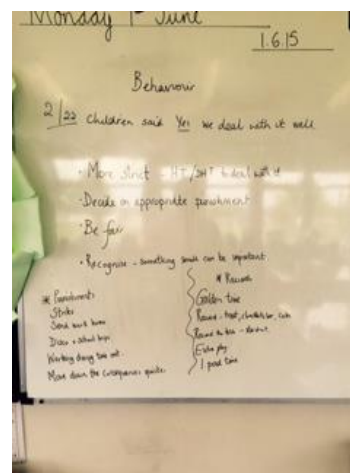 Monday 1st June
1.6.15
Behaviour
2/22 Children said Yes we deal with it well
· More strict - HT/SHT to deal with it
· Decide on appropriate punishment
· Be fair
· Recognise - something small can be important
* Punishments
Strikes
Send work home
Disco + school trips
Working during time out.
Move down the consequences
* Rewards
Golden time
Raisure - treat, chocolate bar,
Extra play
1 proud time